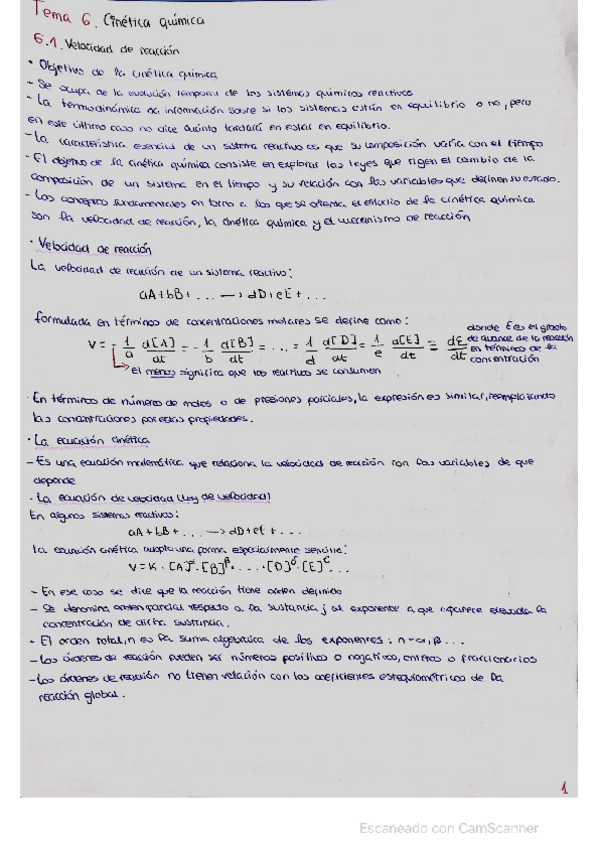 Tema 6. Cinética química
6.1. Velocidad de reacción
· Objetivo de la cinética química
- Se ocupa de la evolución temporal de los sistemas químicos reactivos
- La termodinámica da información sobre si los sistemas están en equilibrio o no, pero
en este último caso no dice cuánto tardará en estar en equilibrio.
- La característica esencial de un sistema reactivo es que su composición varía con el tiempo
- El objetivo de la cinética química consiste en explorar las leyes que rigen el cambio de la
composición de un sistema en el tiempo y su relación con las variables que definen su estado.
- Los conceptos fundamentales en torno a los que se orienta el estudio de la cinética química
son la velocidad de reacción, la cinética química y el mecanismo de reacción
· Velocidad de reacción
La velocidad de reacción de un sistema reactivo:
aA + bB + ... → dD + eE + ...
formulada en términos de concentraciones molares se define como:
V = - 1/a d[A]/dt = - 1/b d[B]/dt = ... = 1/d d[D]/dt = 1/e d[E]/dt = dξ/dt
donde ξ es el grado
de avance de la reacción
en términos de la
concentración
el menos significa que los reactivos se consumen
· En términos de números de moles o de presiones parciales, la expresión es similar, reemplazando
las concentraciones por estas propiedades.
· La ecuación cinética
- Es una ecuación matemática que relaciona la velocidad de reacción con las variables de que
depende
· La ecuación de velocidad (ley de velocidad)
En algunos sistemas reactivos:
aA + bB + ... → dD + eE + ...
la ecuación cinética adopta una forma especialmente sencilla:
V = K · [A]^α · [B]^β · ... · [D]^δ · [E]^ε ...
- En ese caso se dice que la reacción tiene orden definido
- Se denomina orden parcial respecto a la sustancia j al exponente a que aparece elevada la
concentración de dicha sustancia.
- El orden total, n es la suma algebraica de los exponentes: n = α, β ...
- Los órdenes de reacción pueden ser números positivos o negativos, enteros o fraccionarios
- Los órdenes de reacción no tienen relación con los coeficientes estequiométricos de la
reacción global.
1
Escaneado con CamScanner